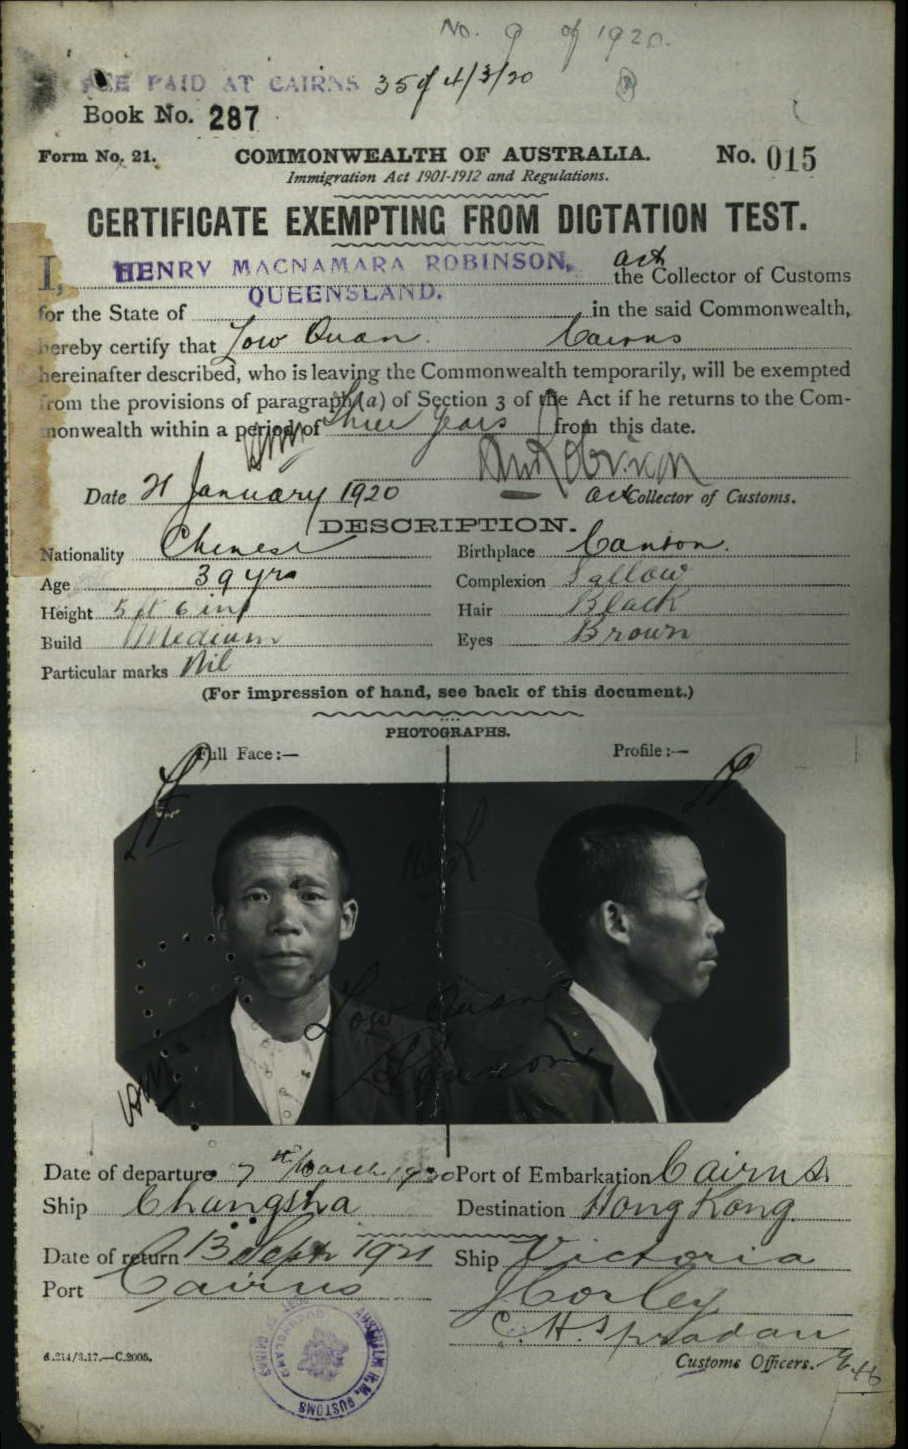 No. 9 of 1920.
FEE PAID AT CAIRNS 4/3/20
Book No. 287
Form No. 21. COMMONWEALTH OF AUSTRALIA. No. 015
Immigration Act 1901-1912 and Regulations.
CERTIFICATE EXEMPTING FROM DICTATION TEST.
I, HENRY MACNAMARA ROBINSON, act the Collector of Customs
for the State of QUEENSLAND. in the said Commonwealth,
hereby certify that Low Quan. Cairns
hereinafter described, who is leaving the Commonwealth temporarily, will be exempted
from the provisions of paragraph (a) of Section 3 of the Act if he returns to the Com-
monwealth within a period of three years from this date.
HMR HMRobinson
Date 21 January 1920 act Collector of Customs.
DESCRIPTION.
Nationality Chinese Birthplace Canton.
Age 39 yrs Complexion Sallow
Height 5 ft 6 ins Hair Black
Build Medium Eyes Brown
Particular marks Nil
(For impression of hand, see back of this document.)
PHOTOGRAPHS.
Full Face:— Profile:—
Low Quan
Date of departure 7th March 1920 Port of Embarkation Cairns.
Ship Changsha Destination Hong Kong.
Date of return 13 Sept 1921 Ship Victoria
Port Cairns
Customs Officers.
6.214/3.17.—C.2005.
AUSTRALIA H.M. CUSTOMS
QUEENSLAND